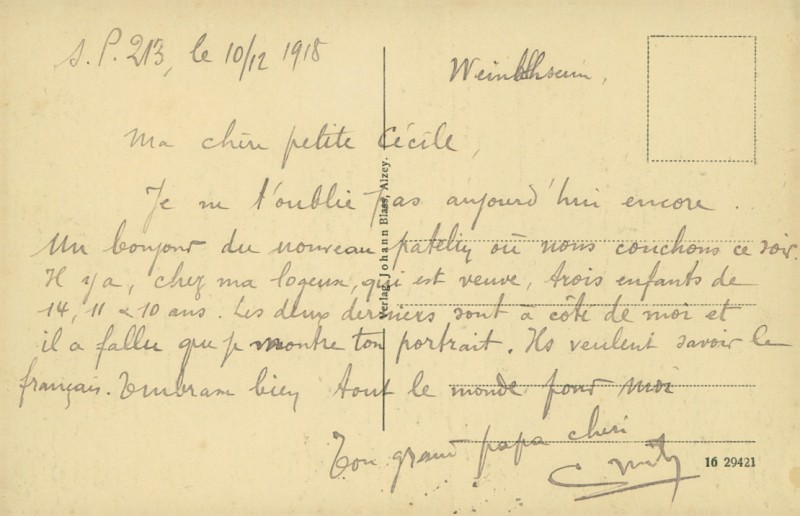 S.P. 213, le 10/12 1918
Ma chère petite Cécile,
Je ne t'oublie pas aujourd'hui encore.
Un bonjour du nouveau patelin où nous couchons ce soir.
Il y a, chez ma logeuse, qui est veuve, trois enfants de
14, 11 & 10 ans. Les deux derniers sont à côté de moi et
il a fallu que je montre ton portrait. Ils veulent savoir le
français. Embrasse bien tout le monde pour moi
Ton grand papa chéri
Verlag Johann Blass, Alzey.
16 29421